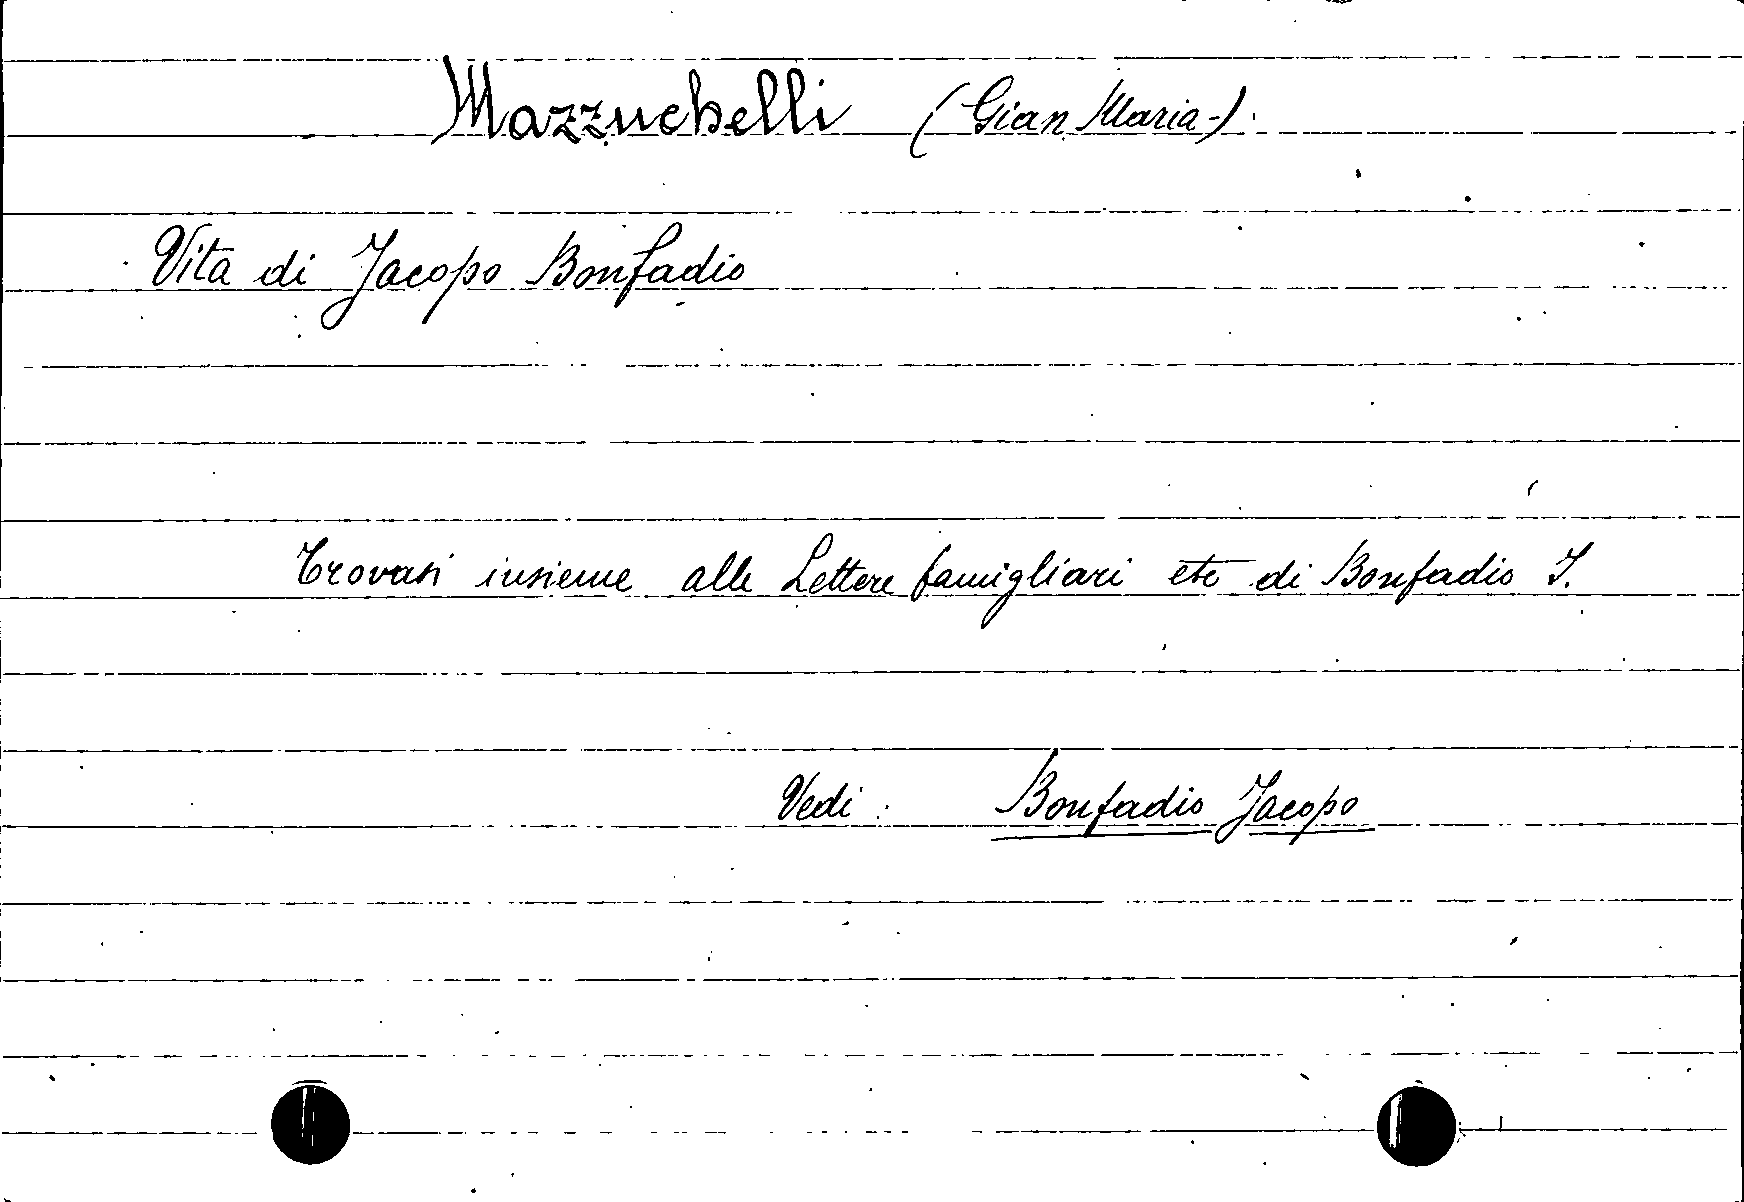 Mazzuchelli (Gian Maria-)
Vita di Jacopo Bonfadio
Trovasi insieme alle Lettere famigliari etc di Bonfadio J.
Vedi: Bonfadio Jacopo